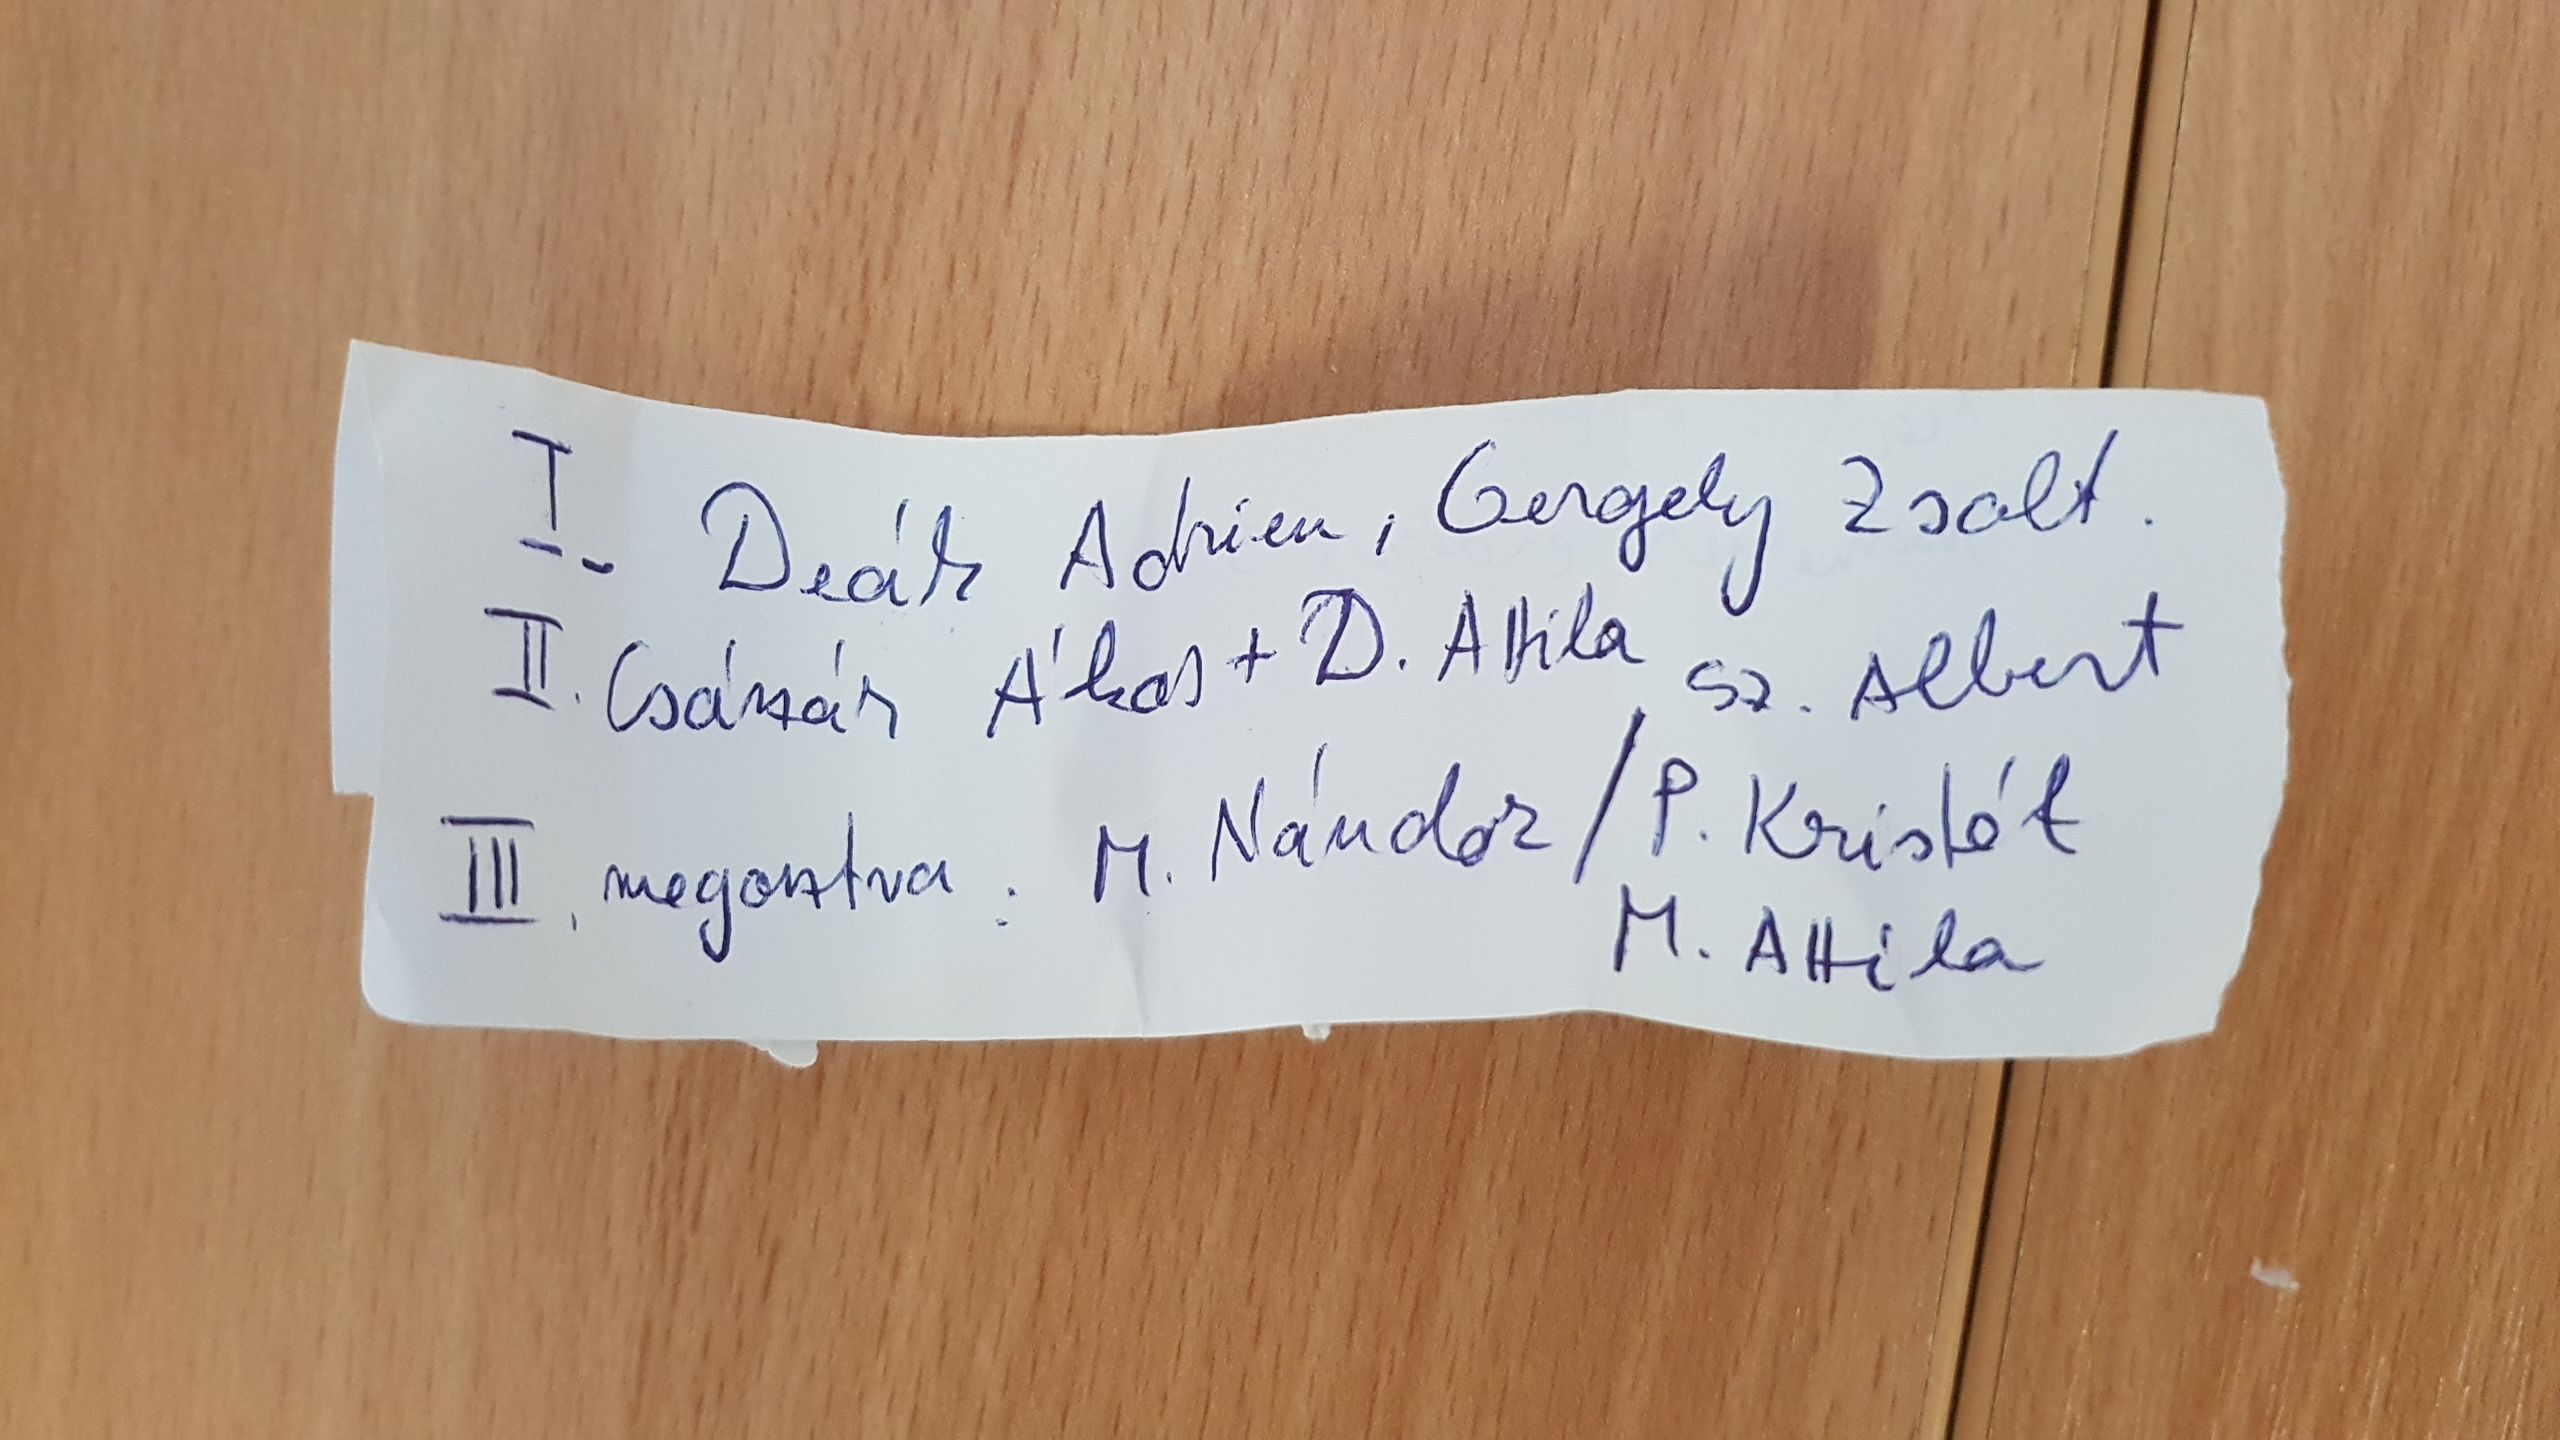 I. Deák Adrien, Gergely Zsolt.
II. Császár Ákos + D. Attila Sz. Albert
III. megosztva: M. Nándor / P. Kristóf
M. Attila